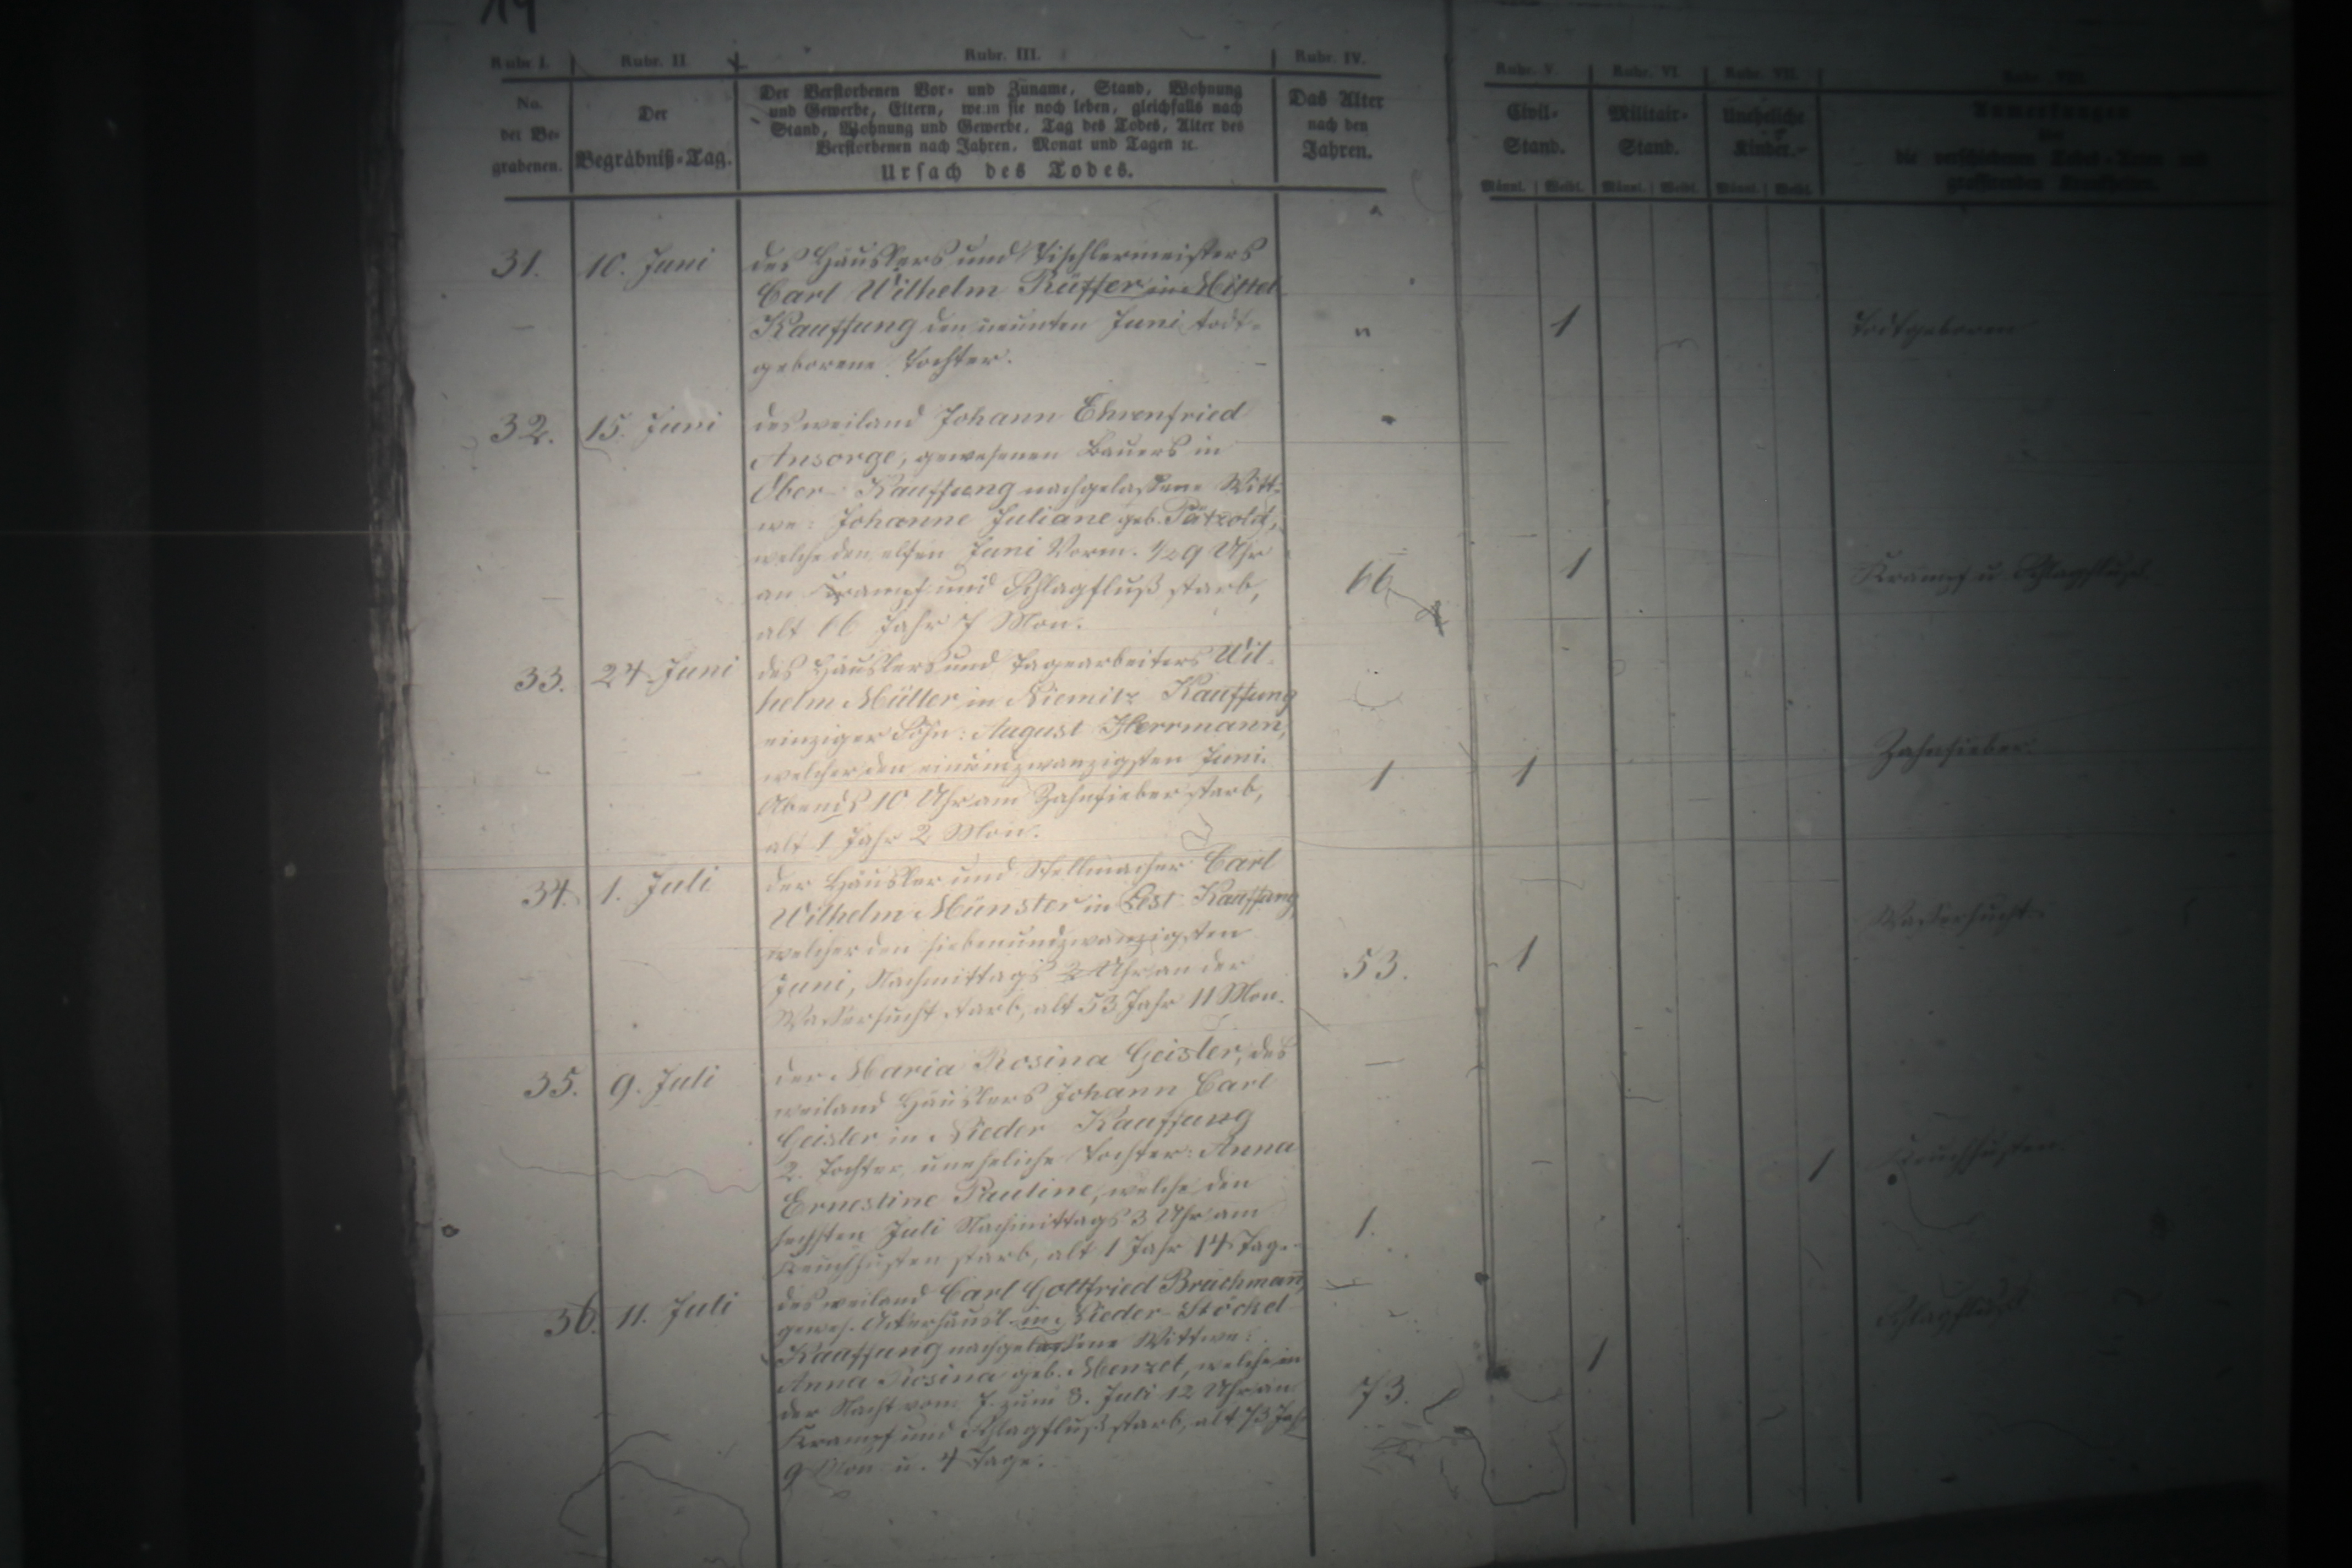 19
Rubr. I. Rubr. II Rubr. III. Rubr. IV. Rubr. V. Rubr. VI. Rubr. VII.
No. der Begrabenen.
Der Begräbniß-Tag.
Der Verstorbenen Vor- und Zuname, Stand, Wohnung
und Gewerbe, Eltern, wenn sie noch leben, gleichfalls nach
Stand, Wohnung und Gewerbe, Tag des Todes, Alter des
Verstorbenen nach Jahren, Monat und Tagen ꝛc.
Ursach des Todes.
Das Alter nach den Jahren.
Civil-Stand. Männl. Weibl.
Militair-Stand. Männl. Weibl.
Uneheliche Kinder. Männl. Weibl.
Anmerkungen
31. 10. Juni des Häuslers und Tischlermeisters
Carl Wilhelm Rüffer in Mittel
Kauffung den neunten Juni todt-
geborene Tochter. " 1 Todtgeboren
32. 15. Juni des weiland Johann Ehrenfried
Ansorge, gewesenen Bauers in
Ober-Kauffung nachgelassene Witt-
we: Johanne Juliane geb. Pätzold,
welche den elften Juni Vorm. 1/2 9 Uhr
an Krampf und Schlagfluß starb,
alt 66 Jahr 7 Mon. 66 1 Krampf u Schlagfluß
33. 24. Juni des Häuslers und Tagearbeiters Wil-
helm Müller in Niemitz Kauffung
einziger Sohn: August Herrmann,
welcher den einundzwanzigsten Juni.
Abends 10 Uhr am Zahnfieber starb,
alt 1 Jahr 2 Mon. 1 1 Zahnfieber
34. 1. Juli der Häusler und Stellmacher Carl
Wilhelm Münster in Lest Kauffung
welcher den siebenundzwanzigsten
Juni, Nachmittags 2 Uhr an der
Wassersucht starb, alt 53 Jahr 11 Mon. 53. 1 Wassersucht
35. 9. Juli der Maria Rosina Geisler, des
weiland Häuslers Johann Carl
Geisler in Nieder Kauffung
2. Tochter uneheliche Tochter: Anna
Ernestine Pauline, welche den
sechsten Juli Nachmittags 3 Uhr am
Keuchhusten starb, alt 1 Jahr 14 Tage. 1. 1 Keuchhusten
36. 11. Juli des weiland Carl Gottfried Brüchmann,
gewes. Ackerhäusl. in Nieder-Stöckel
Kauffung nachgelassene Wittwe:
Anna Rosina geb. Menzel, welche in
der Nacht vom 7. zum 8. Juli 12 Uhr an
Krampf und Schlagfluß starb, alt 73 Jahr
9 Mon u. 4 Tage. 73. 1 Schlagfluß